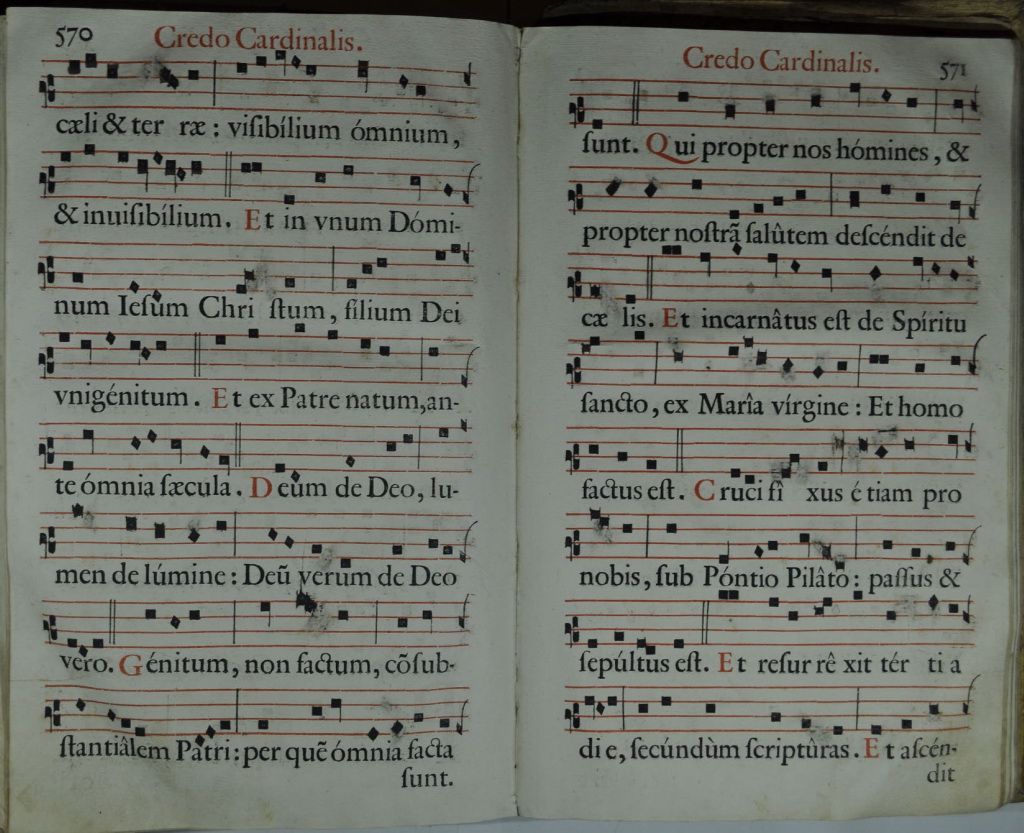 570
Credo Cardinalis.
cæli & ter ræ : viſibílium ómnium,
& inuiſibílium. Et in vnum Dómi-
num Ieſum Chri ſtum, filium Dei
vnigénitum. Et ex Patre natum, an-
te ómnia ſæcula. Deum de Deo, lu-
men de lúmine : Deũ verum de Deo
vero. Génitum, non factum, cõſub-
ſtantiâlem Patri : per quẽ ómnia facta
ſunt.
Credo Cardinalis.
571
ſunt. Qui propter nos hómines, &
propter noſtrã ſalûtem deſcéndit de
cæ lis. Et incarnâtus eſt de Spíritu
ſancto, ex Marîa vírgine : Et homo
factus eſt. Cruci fi xus é tiam pro
nobis, ſub Póntio Pilâto : paſſus &
ſepúltus eſt. Et reſur rê xit tér ti a
di e, ſecúndùm ſcriptûras. Et aſcén-
dit